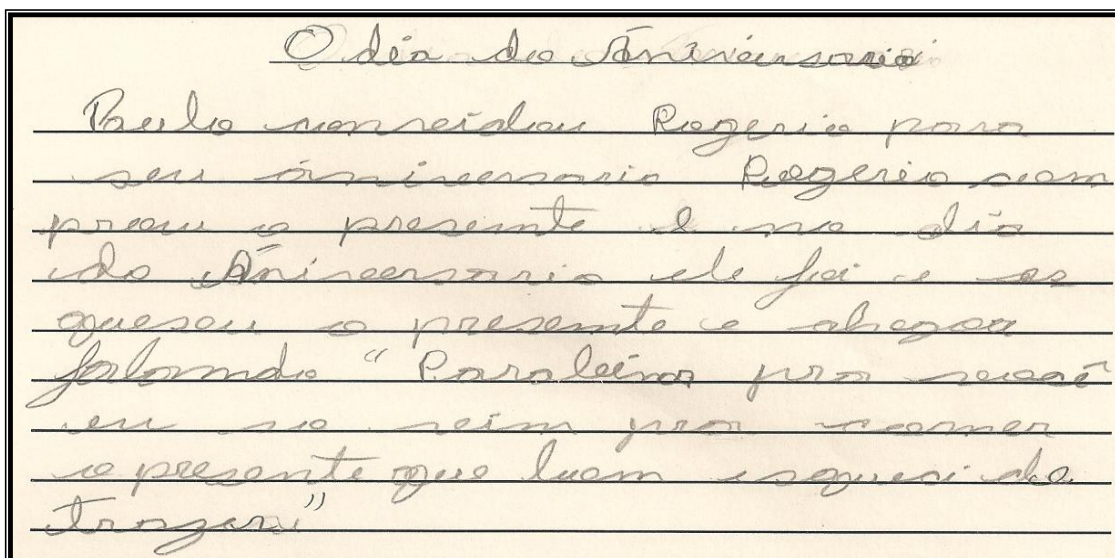 O dia do Âniversario
Paulo convidou Rogerio para
seu âniversario Rogerio com
prou o presente e no dia
do Âniversario ele foi e es
queseu o presente e chegou
falando “Parabéns pra você
eu so vim pra comer
o presente que bom esqueci de
trazer”